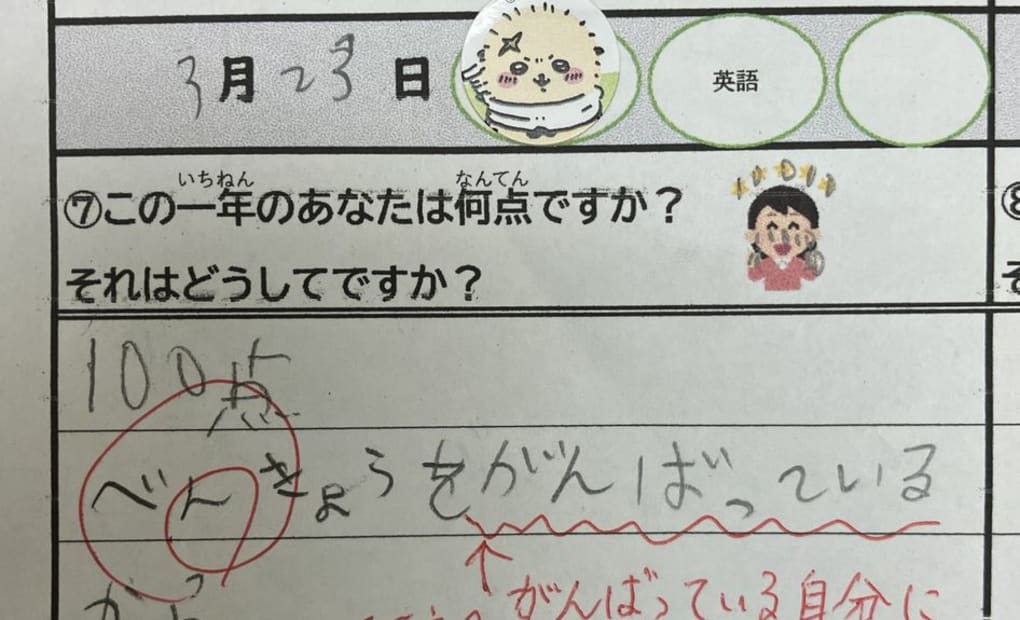 3月23日
英語
いちねん なんてん
⑦この一年のあなたは何点ですか？
それはどうしてですか？
100点
べんきょうをがんばっている
から
がんばっている自分に